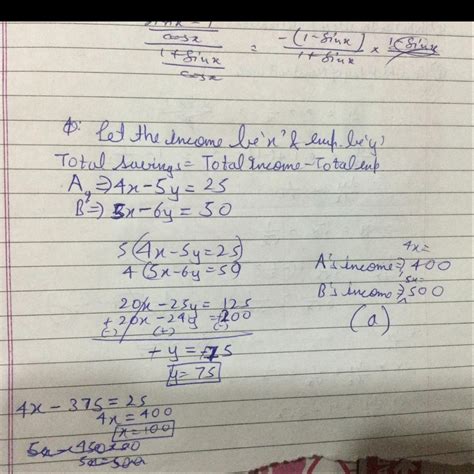 sinx - 1
cosx
1 + sinx
cosx
= -(1 - sinx)
1 + sinx
×
Q: Let the income be 'x' & exp. be 'y'
Total savings = Total income - Total exp
A ⇒ 4x - 5y = 25
B ⇒ 5x - 6y = 50
5(4x - 5y = 25)
4(5x - 6y = 50)
20x - 25y = 125
20x - 24y = 200
(-) (+) (-)
+ y = +75
y = 75
4x - 375 = 25
4x = 400
x = 100
5x = 500
4x =
A's income ⇒ 400
5x =
B's income ⇒ 500
(a)